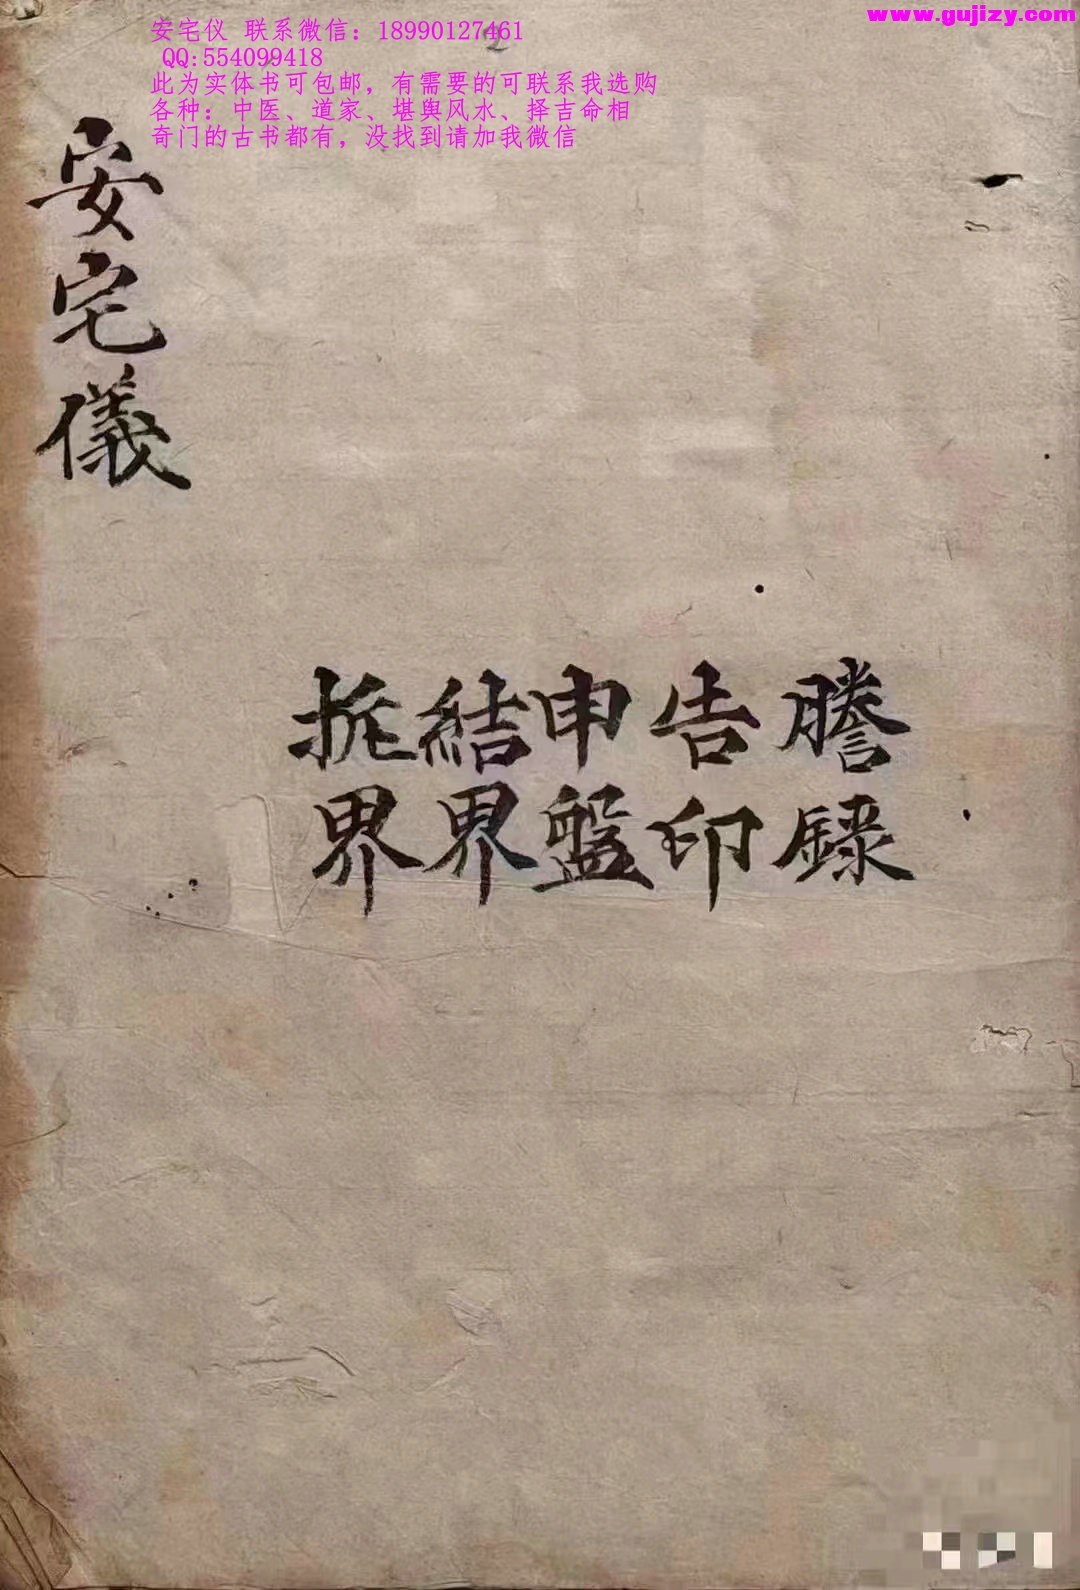 www.gujizy.com
安宅仪 联系微信：18990127461
QQ:554099418
此为实体书可包邮，有需要的可联系我选购
各种：中医、道家、堪舆风水、择吉命相
奇门的古书都有，没找到请加我微信
安宅儀
謄錄
告印
申盤
結界
拆界